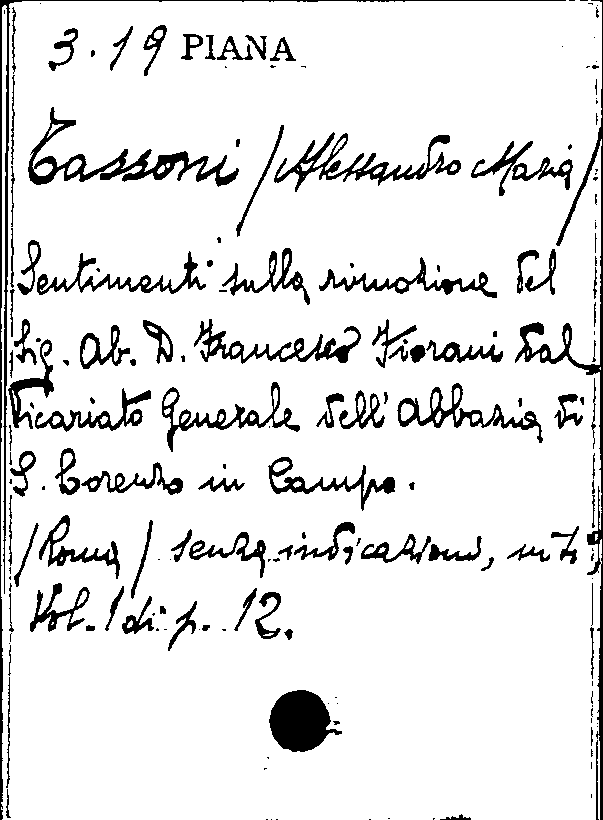 3.19 PIANA
Tassoni /Alessandro Maria/
Sentimenti sulla rimozione del
Sig. Ab. D. Francesco Fiorani dal
Vicariato Generale dell' Abbazia di
S. Lorenzo in Campo.
/Roma/ senza indicazioni, in 4º,
Vol. 1 di p. 12.